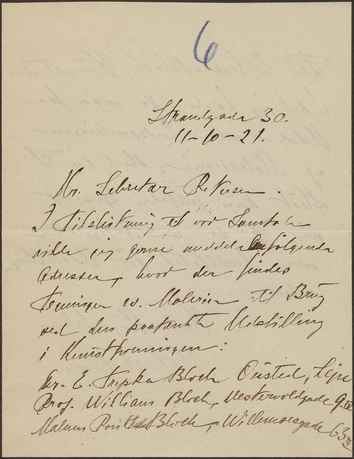 6
Strandgade 30.
11-10-21.
Hr. Sekretær Petersen.
I Tilslutning til vor Samtale
vilde jeg gerne meddele følgende
Adresser, hvor der findes
Tegninger ev. Malerier til Brug
ved den paatænkte Udstilling
i Kunstforeningen:
Dr. E. Trepka Bloch Onsted,
Prof. William Bloch, Vestervoldgade 9
Maleren Bloch, Willemoesgade 63